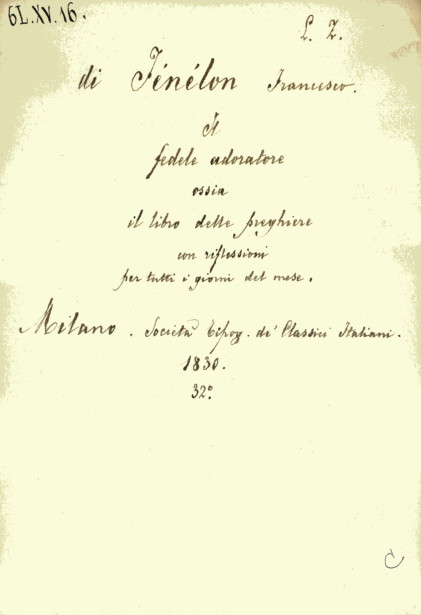 6L.XV.16.
L. Z.
di Fénélon Francesco.
Il
fedele adoratore
ossia
il libro delle preghiere
con riflessioni
per tutti i giorni del mese.
Milano. Società Tipog. de' Classici Italiani.
1830.
32°
C